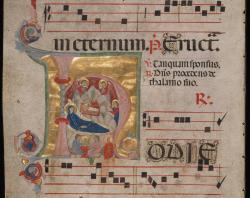 in eternum. p. Tructa.
V. Tanquam sponsus.
R. Dñs procedens de
thalamo suo.
R.
HODIE